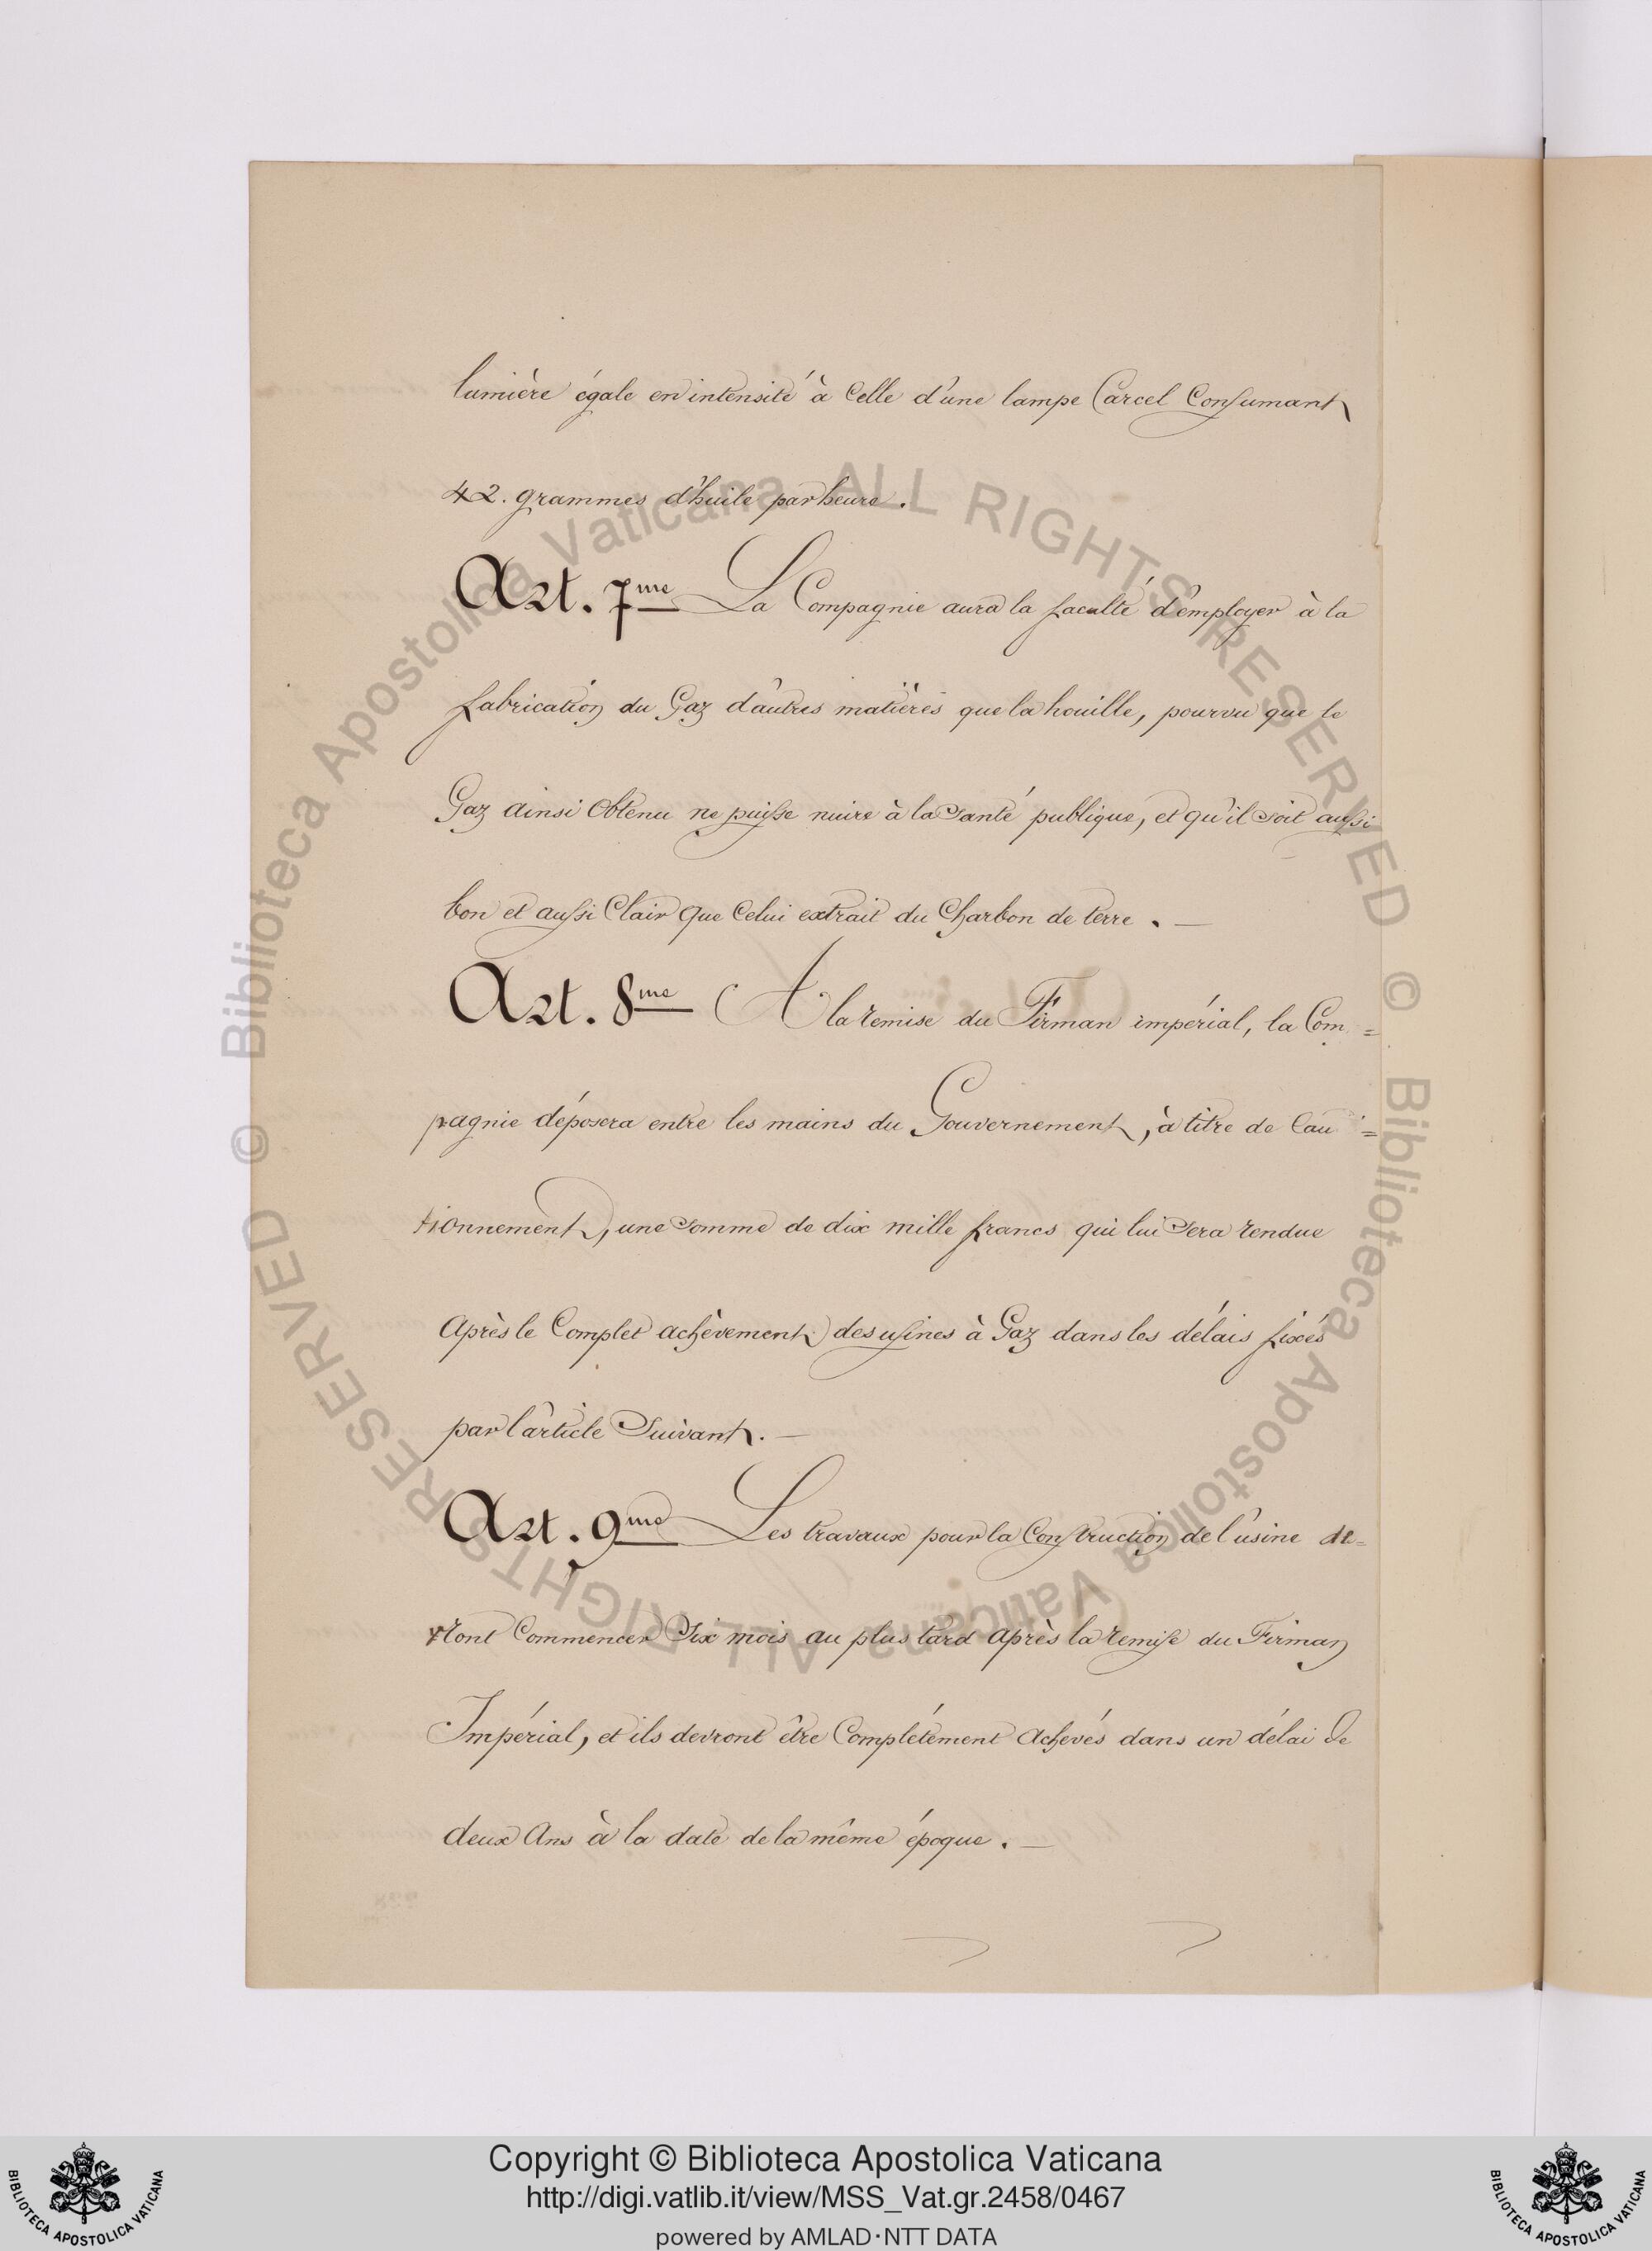 lumière égale en intensité à Celle d'une lampe Carcel Consumant
42. grammes d'huile par heure.
Art. 7me La Compagnie aura la faculté d'employer à la
fabrication du Gaz d'autres matières que la houille, pourvu que le
Gaz ainsi Obtenu ne puisse nuire à la Santé publique, et qu'il soit aussi
bon et aussi Clair que Celui extrait du Charbon de terre. —
Art. 8me A la remise du Firman impérial, la Com=
pagnie déposera entre les mains du Gouvernement, à titre de Cau=
tionnement, une Somme de dix mille francs qui lui Sera rendue
Après le Complet achèvement des usines à Gaz dans les délais fixés
par l'article Suivant. —
Art. 9me Les travaux pour la Construction de l'usine de=
vront Commencer Six mois au plus tard Après la remise du Firman
Impérial, et ils devront être Complétement Achevés dans un délai de
deux Ans à la date de la même époque. —
© Biblioteca Apostolica Vaticana ALL RIGHTS RESERVED
© Biblioteca Apostolica Vaticana ALL RIGHTS RESERVED
Copyright © Biblioteca Apostolica Vaticana
http://digi.vatlib.it/view/MSS_Vat.gr.2458/0467
powered by AMLAD·NTT DATA
BIBLIOTECA APOSTOLICA VATICANA
BIBLIOTECA APOSTOLICA VATICANA